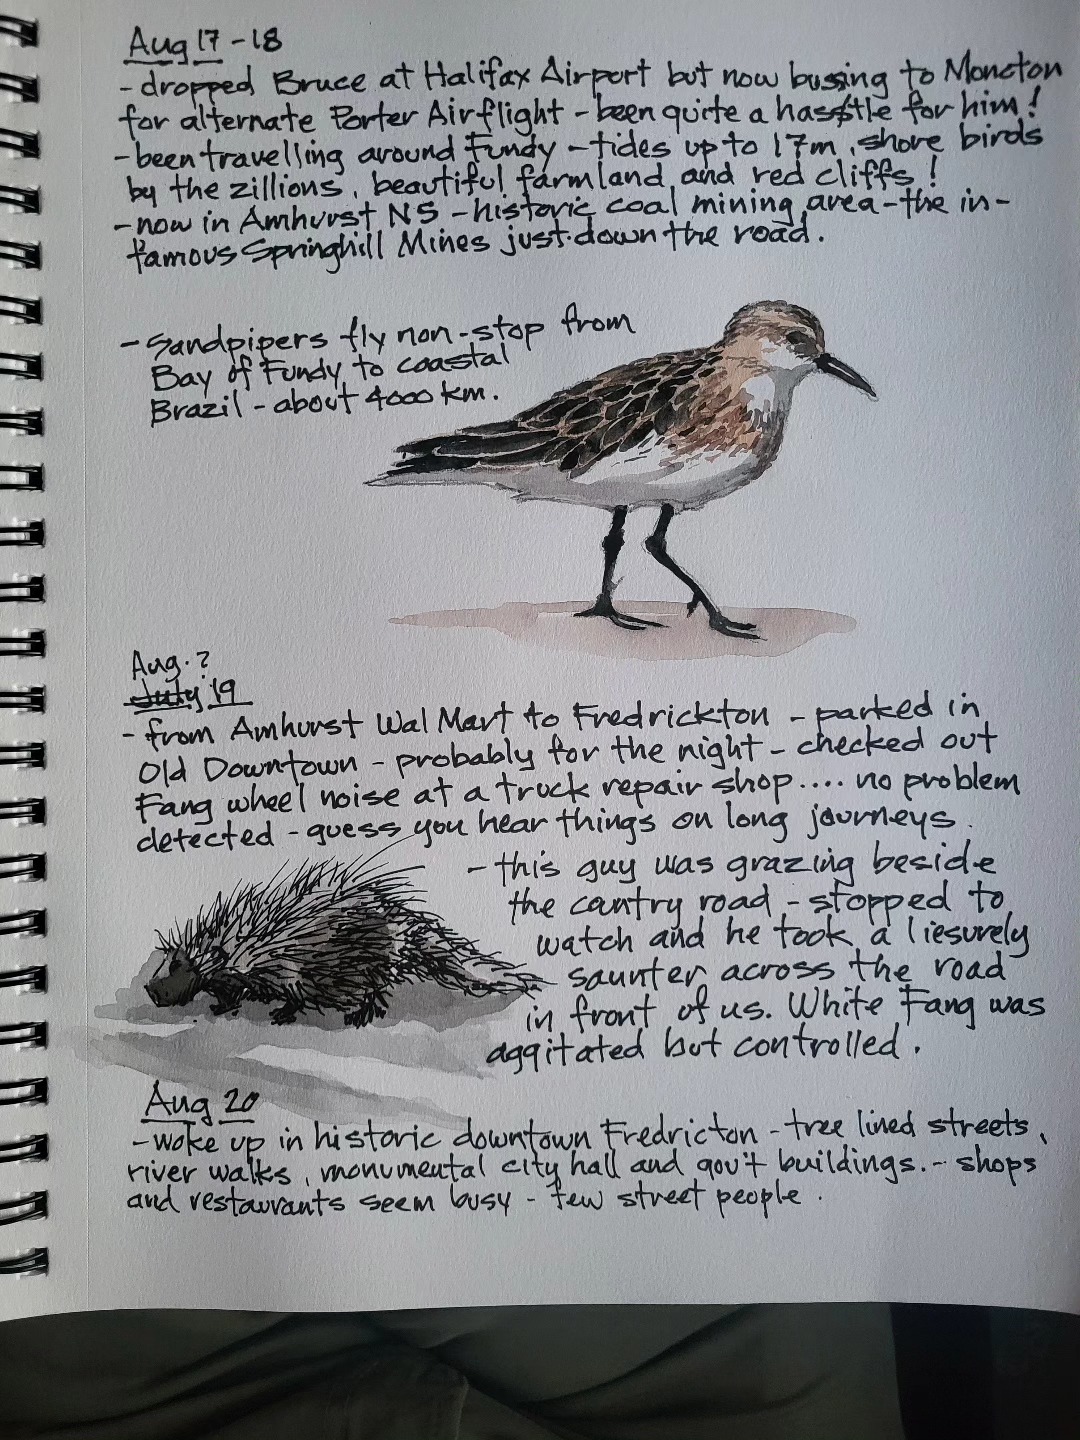 Aug 17 - 18
- dropped Bruce at Halifax Airport but now bussing to Moncton
for alternate Porter Air flight - been quite a hasstle for him!
- been travelling around Fundy - tides up to 17m, shore birds
by the zillions, beautiful farmland and red cliffs!
- now in Amhurst NS - historic coal mining area - the in-
famous Springhill Mines just down the road.
- Sandpipers fly non-stop from
Bay of Fundy to coastal
Brazil - about 4000 km.
Aug. ?
July 19
- from Amhurst Wal Mart to Fredrickton - parked in
Old Downtown - probably for the night - checked out
Fang wheel noise at a truck repair shop.... no problem
detected - guess you hear things on long journeys.
- this guy was grazing beside
the country road - stopped to
watch and he took a liesurely
saunter across the road
in front of us. White Fang was
aggitated but controlled.
Aug 20
- woke up in historic downtown Fredricton - tree lined streets,
river walks, monumental city hall and gov't buildings. - shops
and restaurants seem busy - few street people.